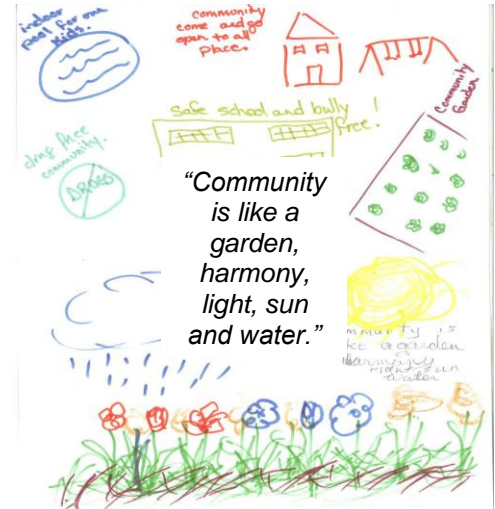 indoor
pool for our
kids.
community
come and go
open to all
place.
Community
Garden
safe school and bully !
free.
drug free
community.
DRUGS
“Community
is like a
garden,
harmony,
light, sun
and water.”
mmunity is
ke a garden
harmony
light sun
water